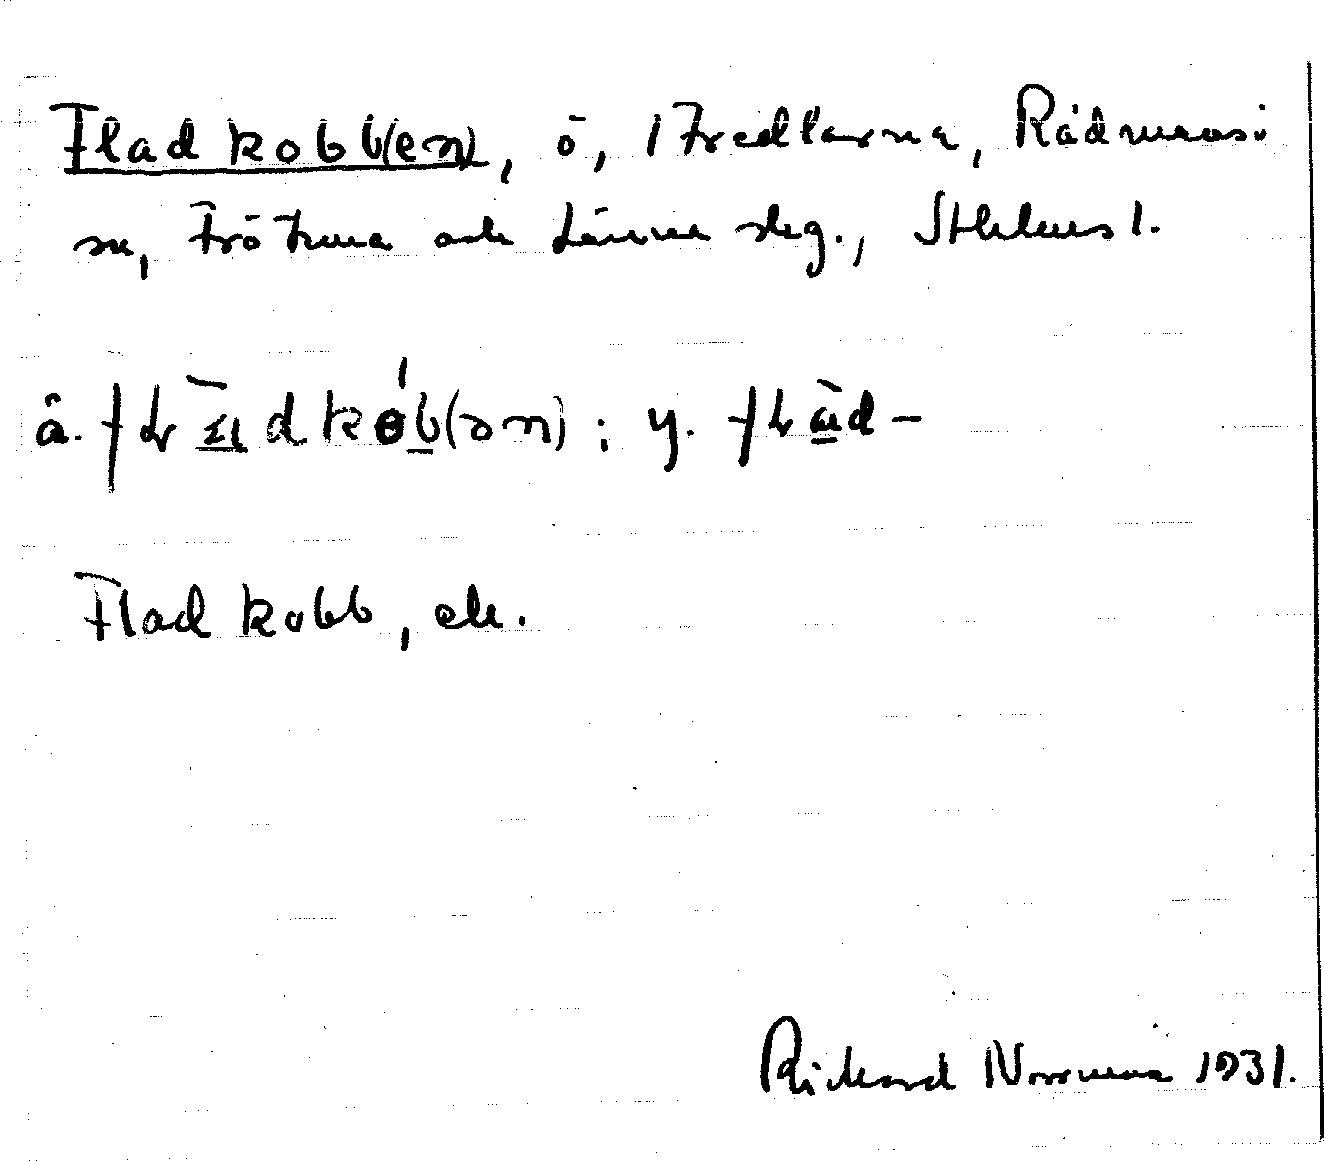 Fladkobb(en), ö, i Fredlarna, Rådmansö
sn, Frötuna och Länna skg., Sthlms l.
ä. flādkob(ən); y. flåd-
Fladkobb, ek.
Rickard Norrman 1931.